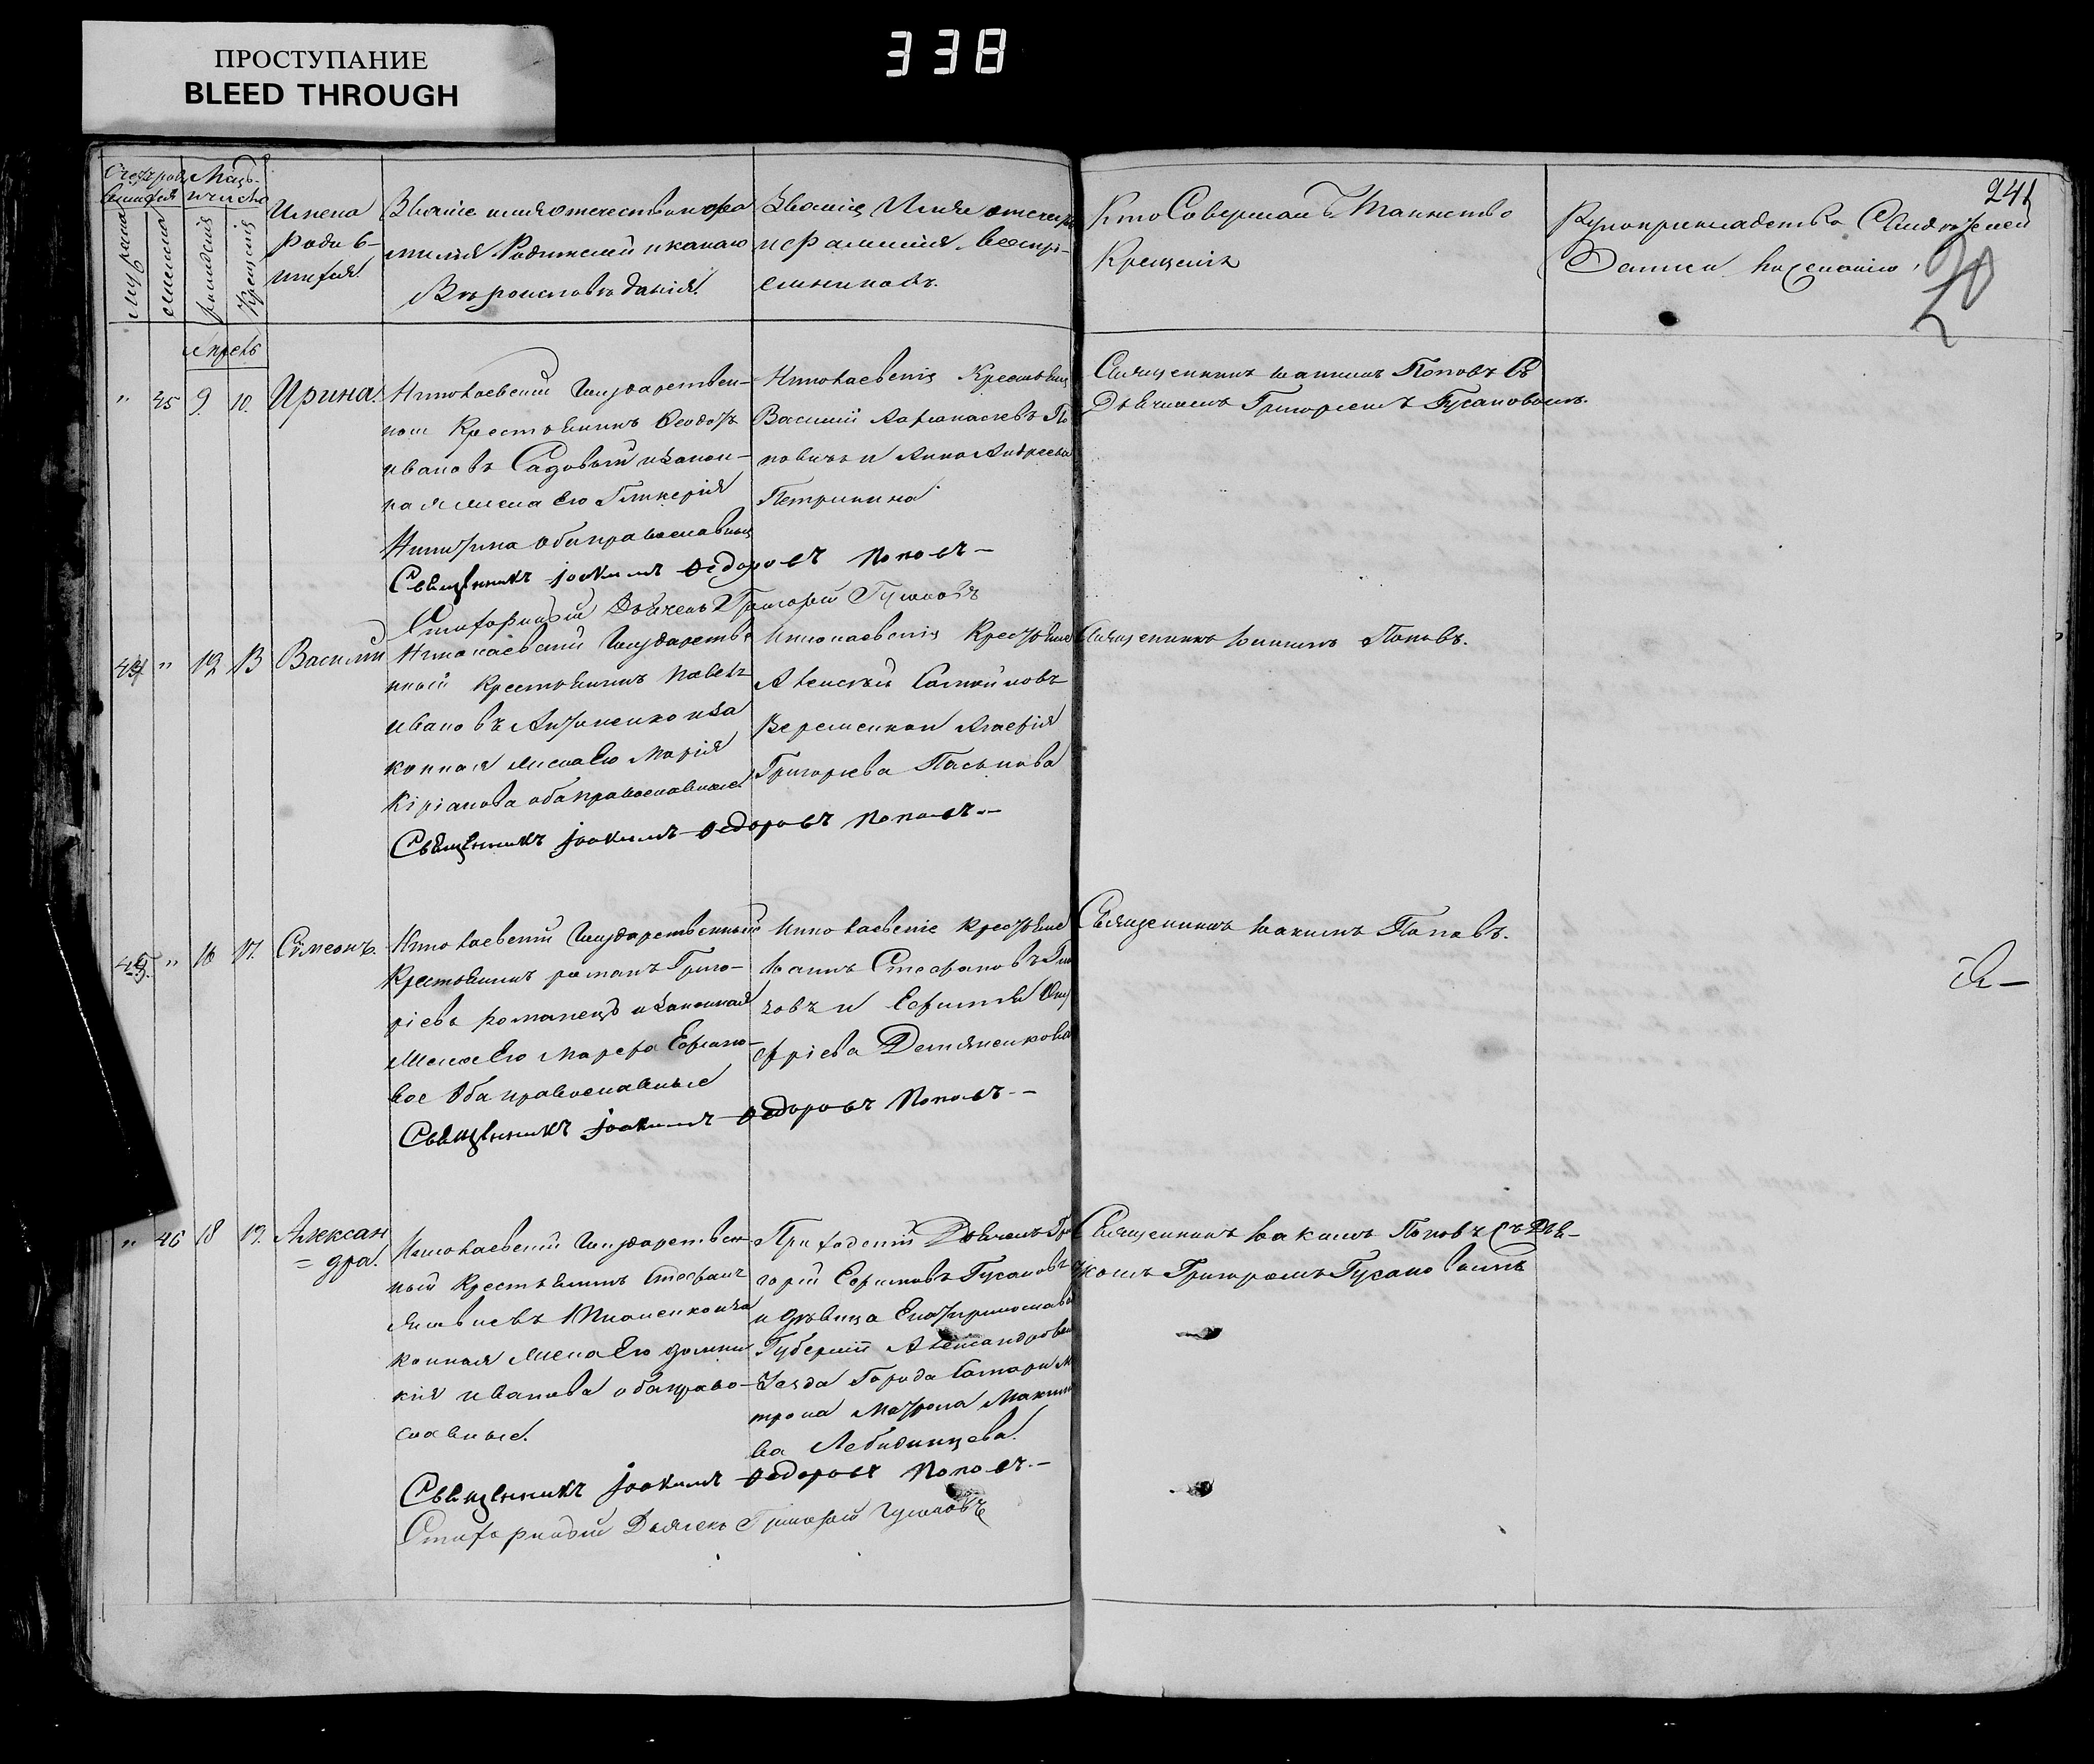 ПРОСТУПАНИЕ
BLEED THROUGH
338
241
20
Счетъ роди
вшихся
Мсцъ
и число
мужеска
женска
рожденія
Крещенія
Имена
роди в-
шихся
Званіе имя отечество и фа
милія Родителей и какаго
Вѣроисповѣданія.
Званіе Имя отечество
и фамилія воспрі-
емниковъ.
Кто Совершалъ Таинство
Крещенія
Рукоприкладство Свидѣтелей
Записи по желанію
апрель
" 45 9. 10. Ирина.
Николаевскій Государствен-
ной Крестьянинъ Ѳеодоръ
ивановъ Садовый и закон-
ная жена Его Гликерія
Никитина оба православныя
Николаевскіе Крестьяне
Василій Афанасіевъ По
повичъ и Анна Андреева
Петрикина
Священникъ Іоакимъ Поповъ Съ
Дьячкомъ Григоріемъ Гусаковымъ.
Священникъ Іоакимъ Ѳедоровъ Поповъ
Стихарный Дьячекъ Григорій Гусаковъ
44 " 12 13 Василій
Николаевскій Государстве
нной Крестьянинъ Павелъ
ивановъ Антипенко и за
конная жена Его Марія
Кіріанова оба православные
Николаевскіе Крестьяне
Алексѣй Самойловъ
Веремеенко и Агафія
Григорьева Паськова
Священникъ Іоакимъ Поповъ.
Священникъ Іоакимъ Ѳедоровъ Поповъ
45. " 16 17. Симеонъ.
Николаевскій Государственный
Крестьянинъ романъ Григо-
ріевъ романецъ и законная
Жена Его Марфа
вое Оба православные
Николаевскіе Крестьяне
Іоаннъ Стефановъ
ховъ и Ефимія Ону
фріева Демяненкова
Священникъ Іоакимъ Поповъ.
Священникъ Іоакимъ Ѳедоровъ Поповъ
" 46 18 19. Алексан
= дра.
Николаевскій Государствен
ный Крестьянинъ Стефанъ
и за
конная жена Его домни
кія иванова оба право-
славные.
Приходскій Дьячекъ Гри
горій Ефимовъ Гусаковъ
и дѣвица Екатеринославс
Губерніи Александровск
Уезда Города
Матрона Макси
ва Лебединцева.
Священникъ Іоакимъ Поповъ Съ Дья-
чкомъ Григоріемъ Гусаковымъ
Священникъ Іоакимъ Ѳедоровъ Поповъ
Стихарный Дьячекъ Григорій Гусаковъ